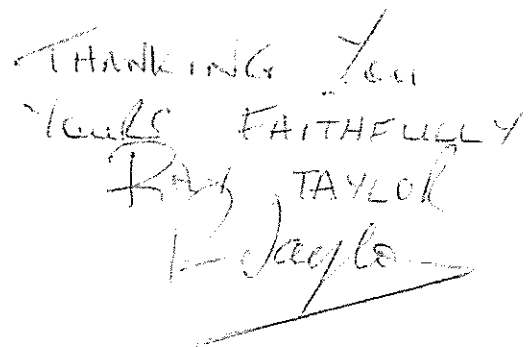 THANKING YOU
YOURS FAITHFULLY
RAY TAYLOR
R Taylor